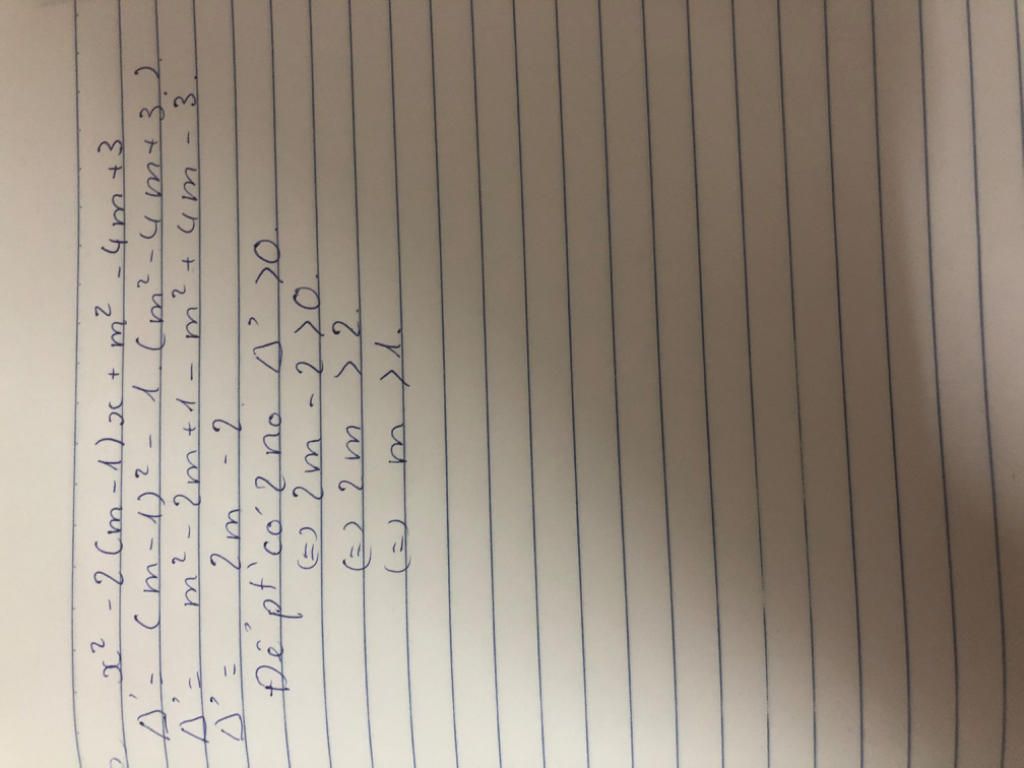 x² - 2(m-1)x + m² - 4m + 3
Δ' = (m-1)² - 1.(m² - 4m + 3)
Δ' = m² - 2m + 1 - m² + 4m - 3.
Δ' = 2m - 2
Để pt có 2 no Δ' > 0.
(=) 2m - 2 > 0.
(=) 2m > 2.
(=) m > 1.